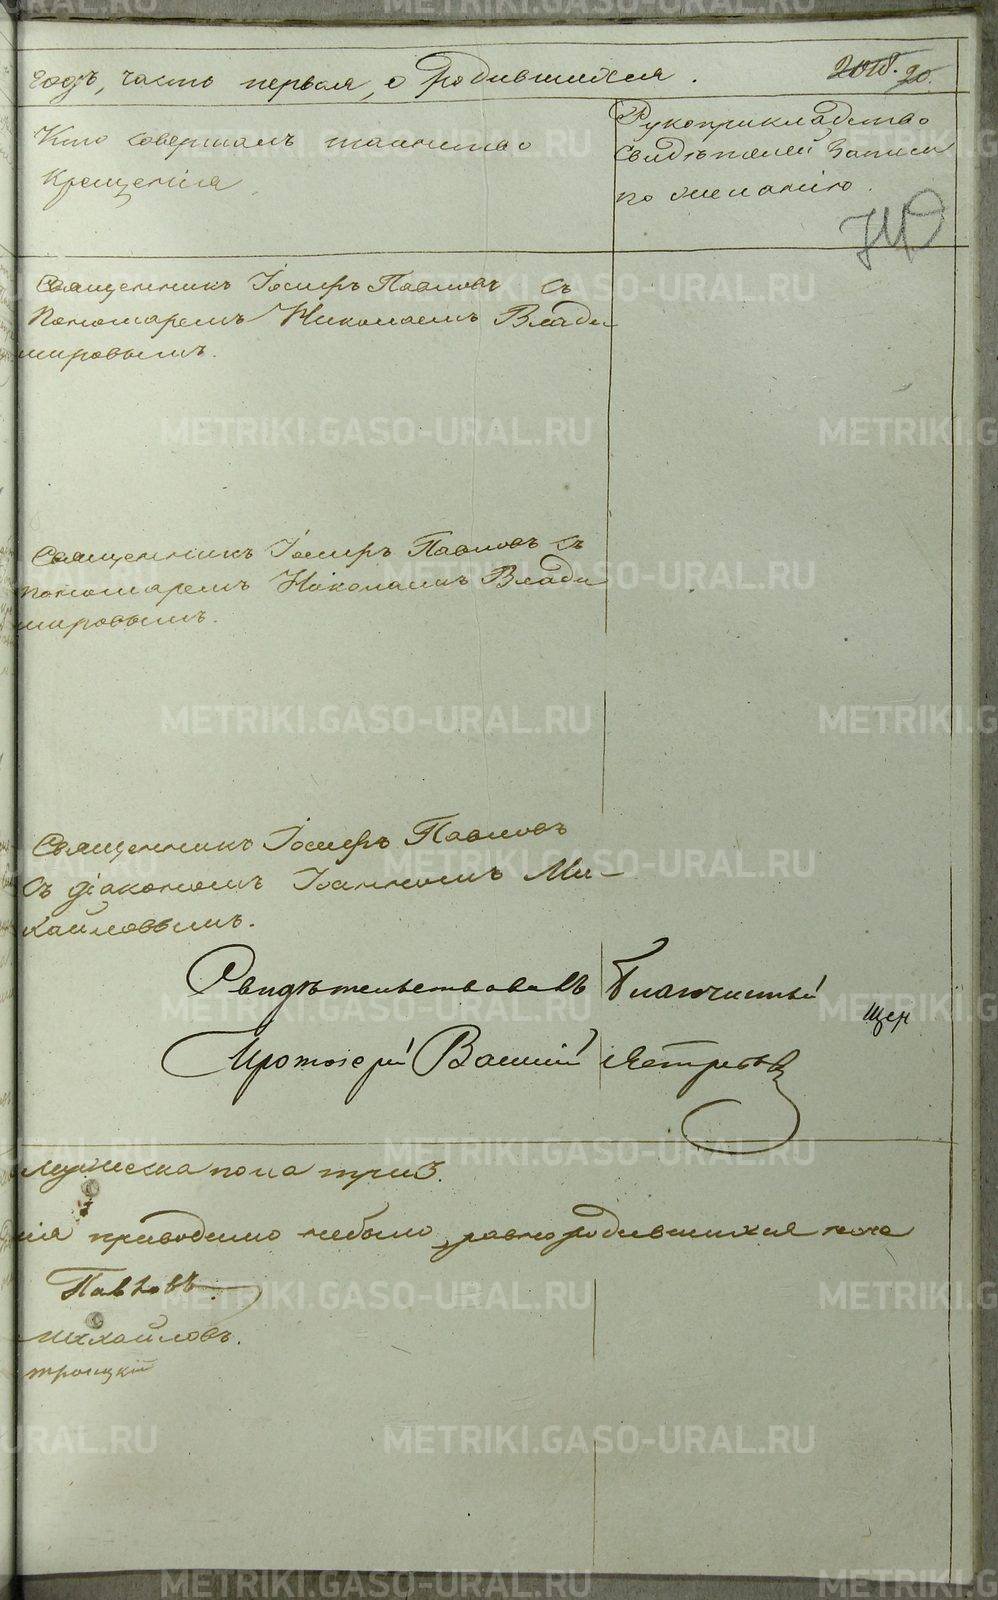 годъ, часть первая, о родившихся.
Кто совершалъ таинство
Крещенія
Рукоприкладство
свидѣтелей записи
по желанію.
Священникъ Іосифъ Павловъ съ
Пономаремъ Николаемъ Влади-
мировымъ.
Священникъ Іосифъ Павловъ съ
пономаремъ Николаемъ Влади
мировымъ.
Священникъ Іосифъ Павловъ
съ діакономъ Іоанномъ Ми-
хайловымъ.
Свидѣтельствовалъ Благочинный
Протоіерей Василій Ястребовъ
мужеска пола три 3.
нія приводимо небыло, равно родившихся
Павловъ.
Михайловъ.
троицкій
METRIKI.GASO-URAL.RU